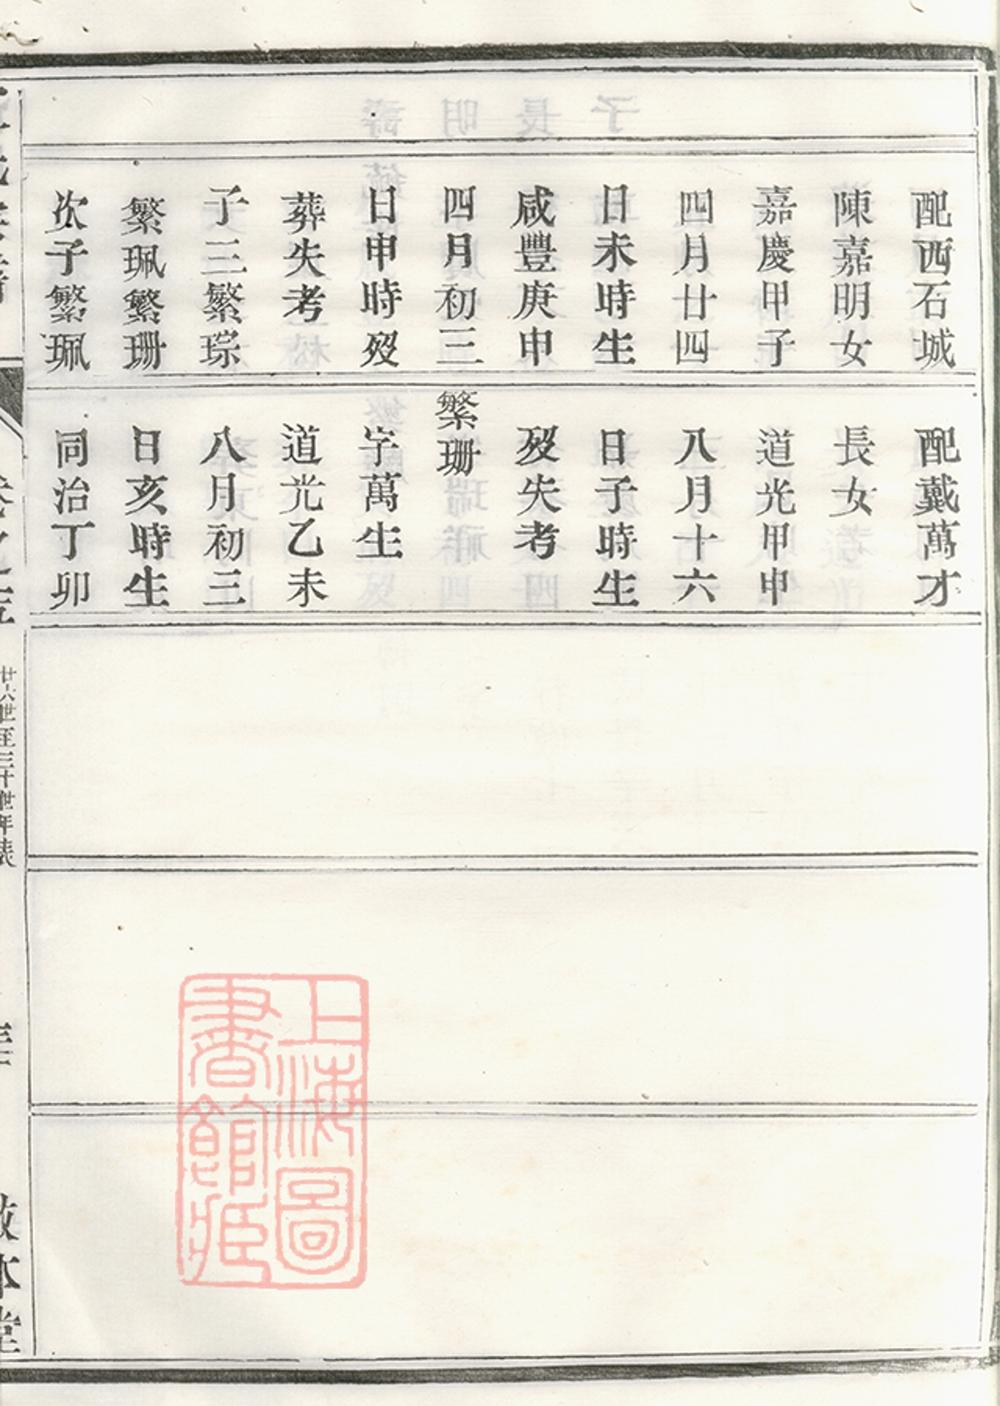 配西石城
陳嘉明女
嘉慶甲子
四月廿四
日未時生
咸豐庚申
四月初三
日申時歿
葬失考
子三繁琮
繁珮繁珊
次子繁珮
配戴萬才
長女
道光甲申
八月十六
日子時生
歿失考
繁珊
字萬生
道光乙未
八月初三
日亥時生
同治丁卯
廿六世至三十世年表
敬本堂
上海圖
書館藏